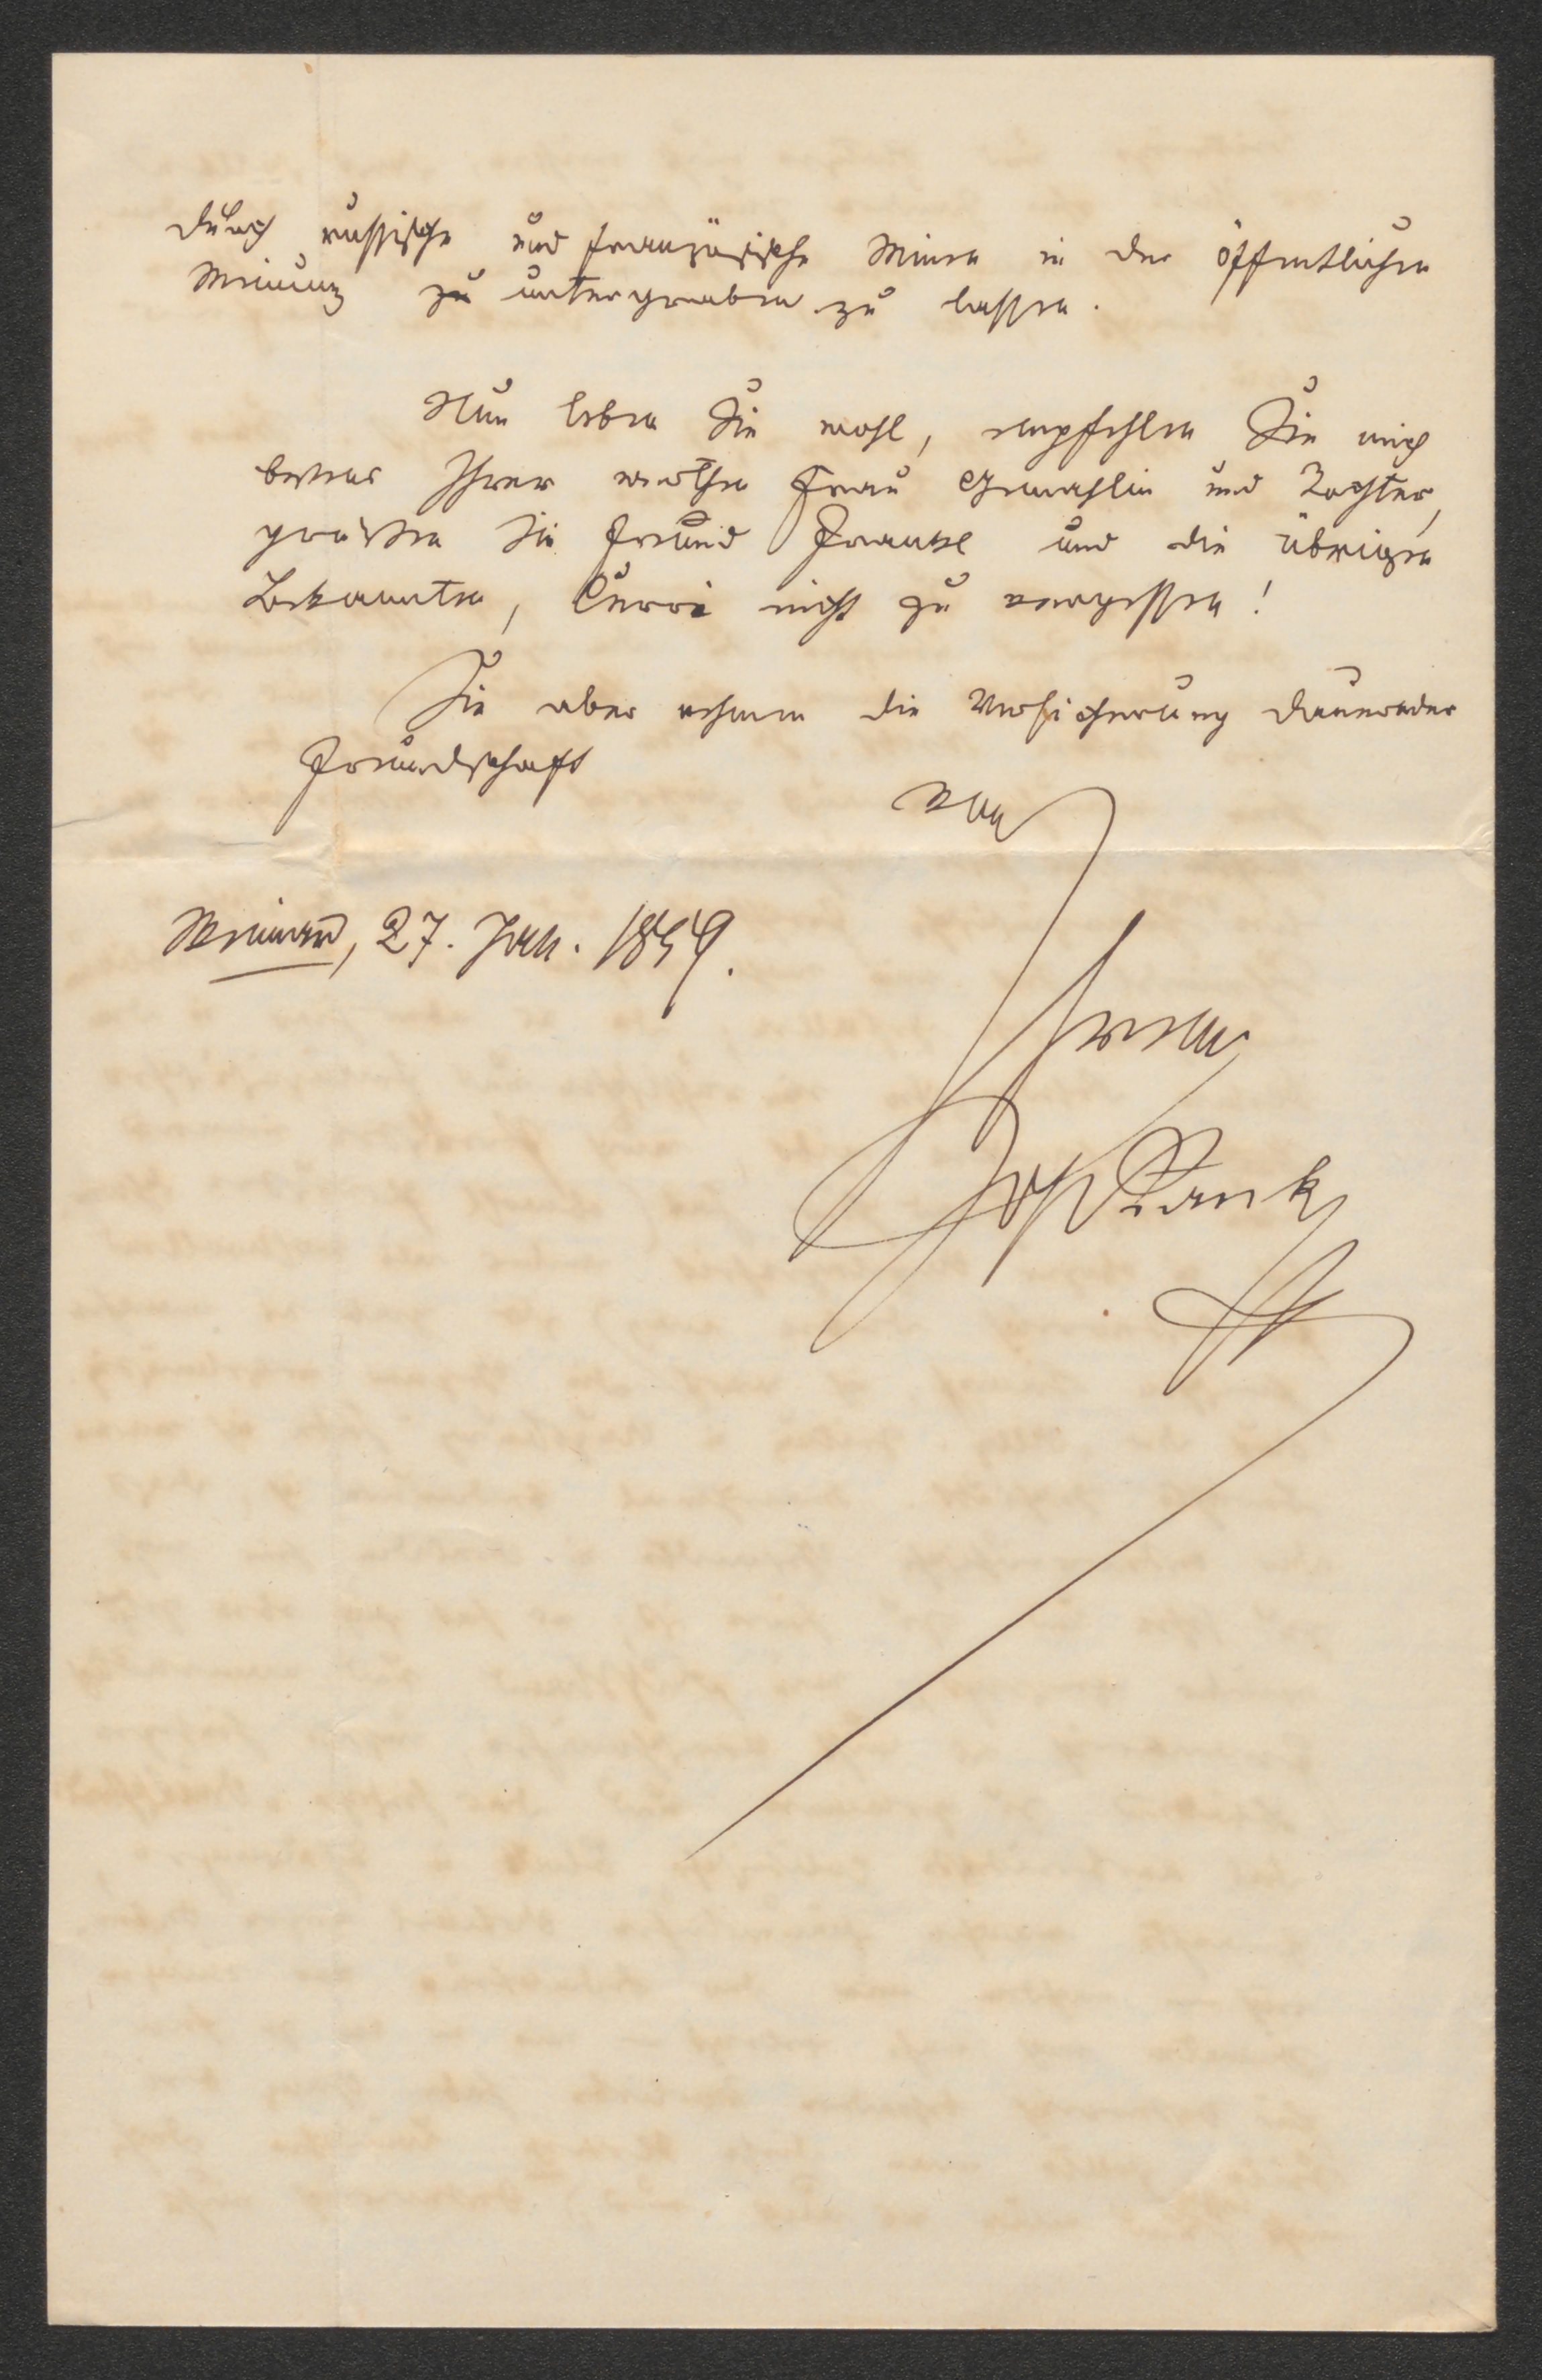 durch russische und französische Minen in der öffentlichen
Meinung zu untergraben zu lassen.
Nun leben Sie wohl, empfehlen Sie mich
bestens Ihrer werthen Frau Gemahlin und Tochter,
grüßen Sie Freund Frankl und die übrigen
Bekannten, nicht zu vergessen!
Sie aber nehmen die Versicherung dauernder
Freundschaft
von
Weimar, 27. Jan. 1859.
Ihrem
Jos Rank